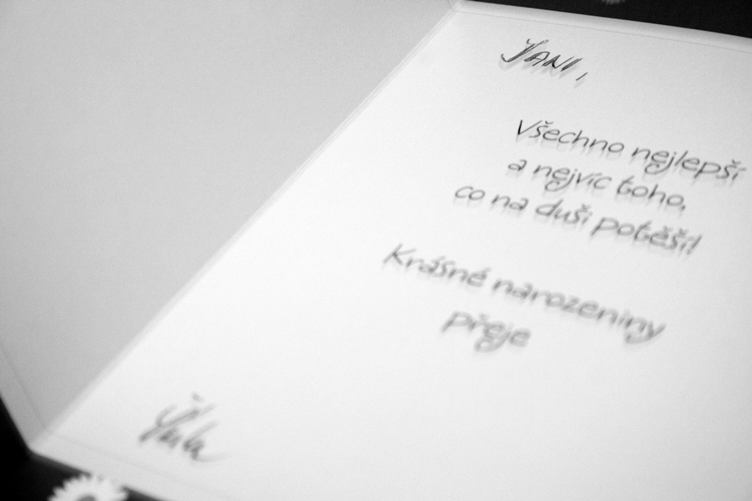 JANI,
Všechno nejlepší
a nejvíc toho,
co na duši potěší!
Krásné narozeniny
přeje